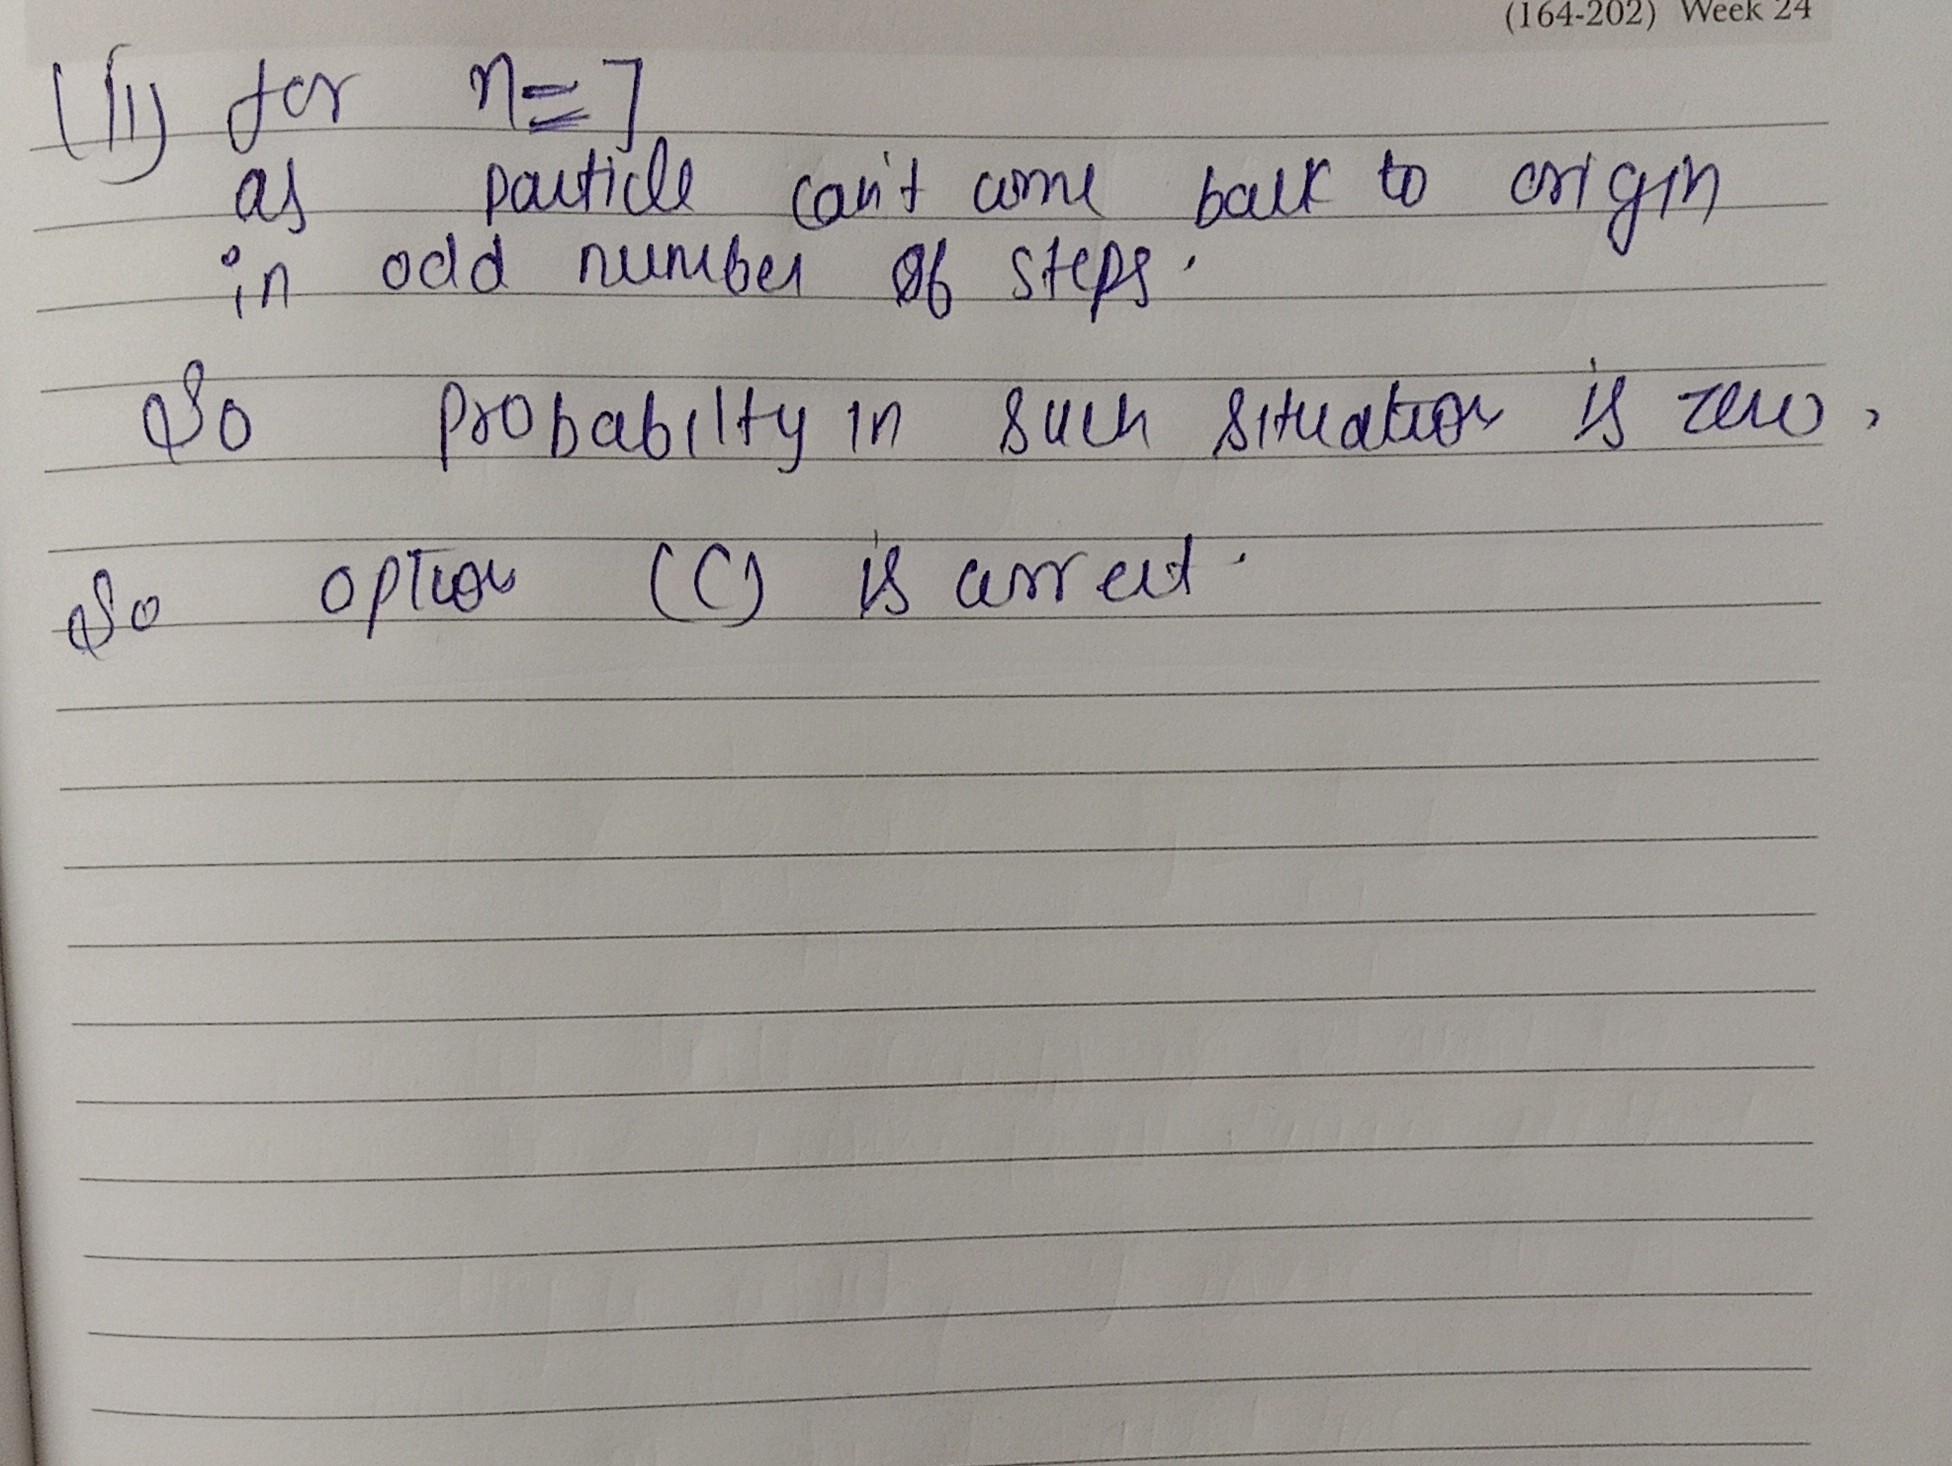 (164-202) Week 24
(ii) for n = 7
as particle can't come back to origin
in odd number of steps.
So probabilty in such situation is zero.
So option (C) is correct.